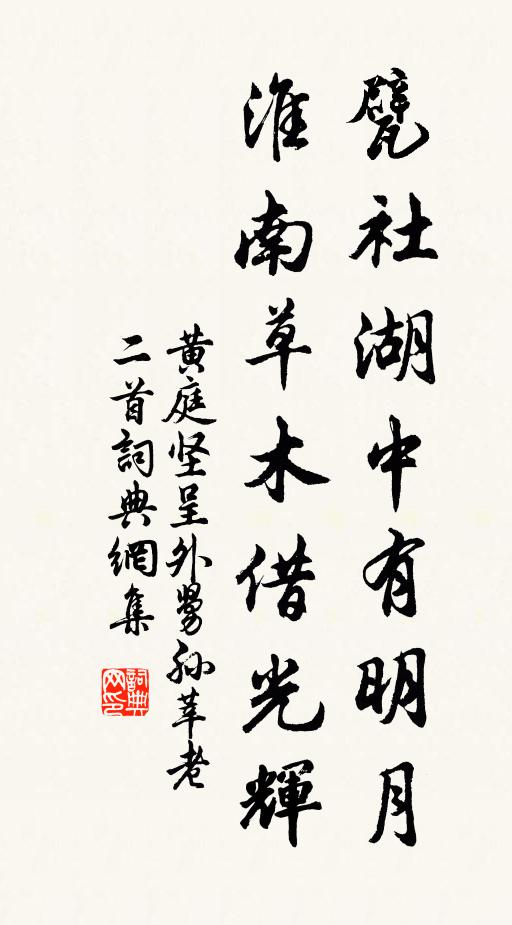 甓社湖中有明月
淮南草木借光輝
黄庭坚呈外舅孙莘老
二首詞典網集
詞典
网印